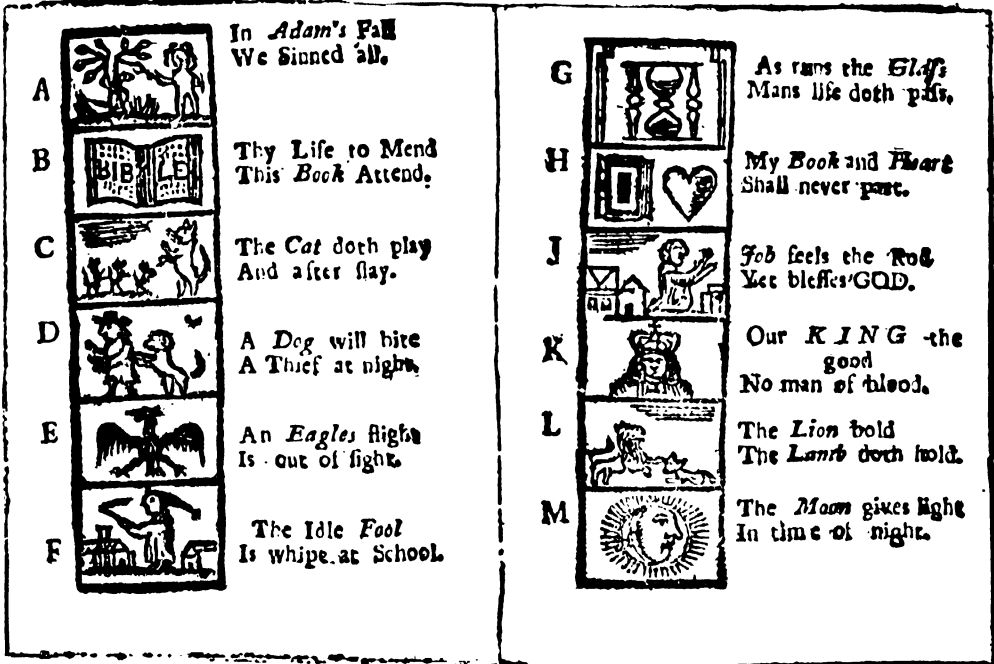 A
In Adam's Fall
We Sinned all.
B
BIBLE
Thy Life to Mend
This Book Attend.
C
The Cat doth play
And after slay.
D
A Dog will bite
A Thief at night.
E
An Eagles flight
Is out of sight.
F
The Idle Fool
Is whipt at School.
G
As runs the Glass
Mans life doth pass.
H
My Book and Heart
Shall never part.
J
Job feels the Rod
Yet blesses GOD.
K
Our KING the
good
No man of blood.
L
The Lion bold
The Lamb doth hold.
M
The Moon gives light
In time of night.